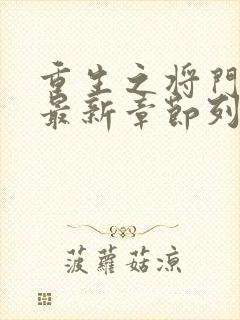 重生之将门
最新章節列
菠蘿菇凉